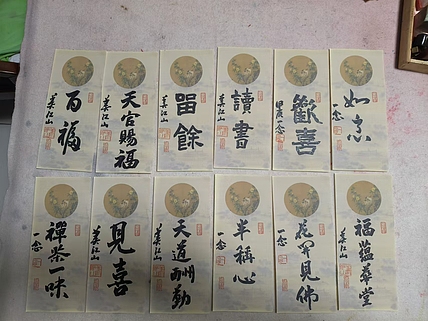 百福
姜江山
天官賜福
姜江山
留餘
姜江山
讀書
姜江山
歡喜
一念
如意
一念
禪茶一味
一念
見喜
姜江山
天道酬勤
姜江山
半稱心
一念
花開見佛
一念
福蘊華堂
姜江山